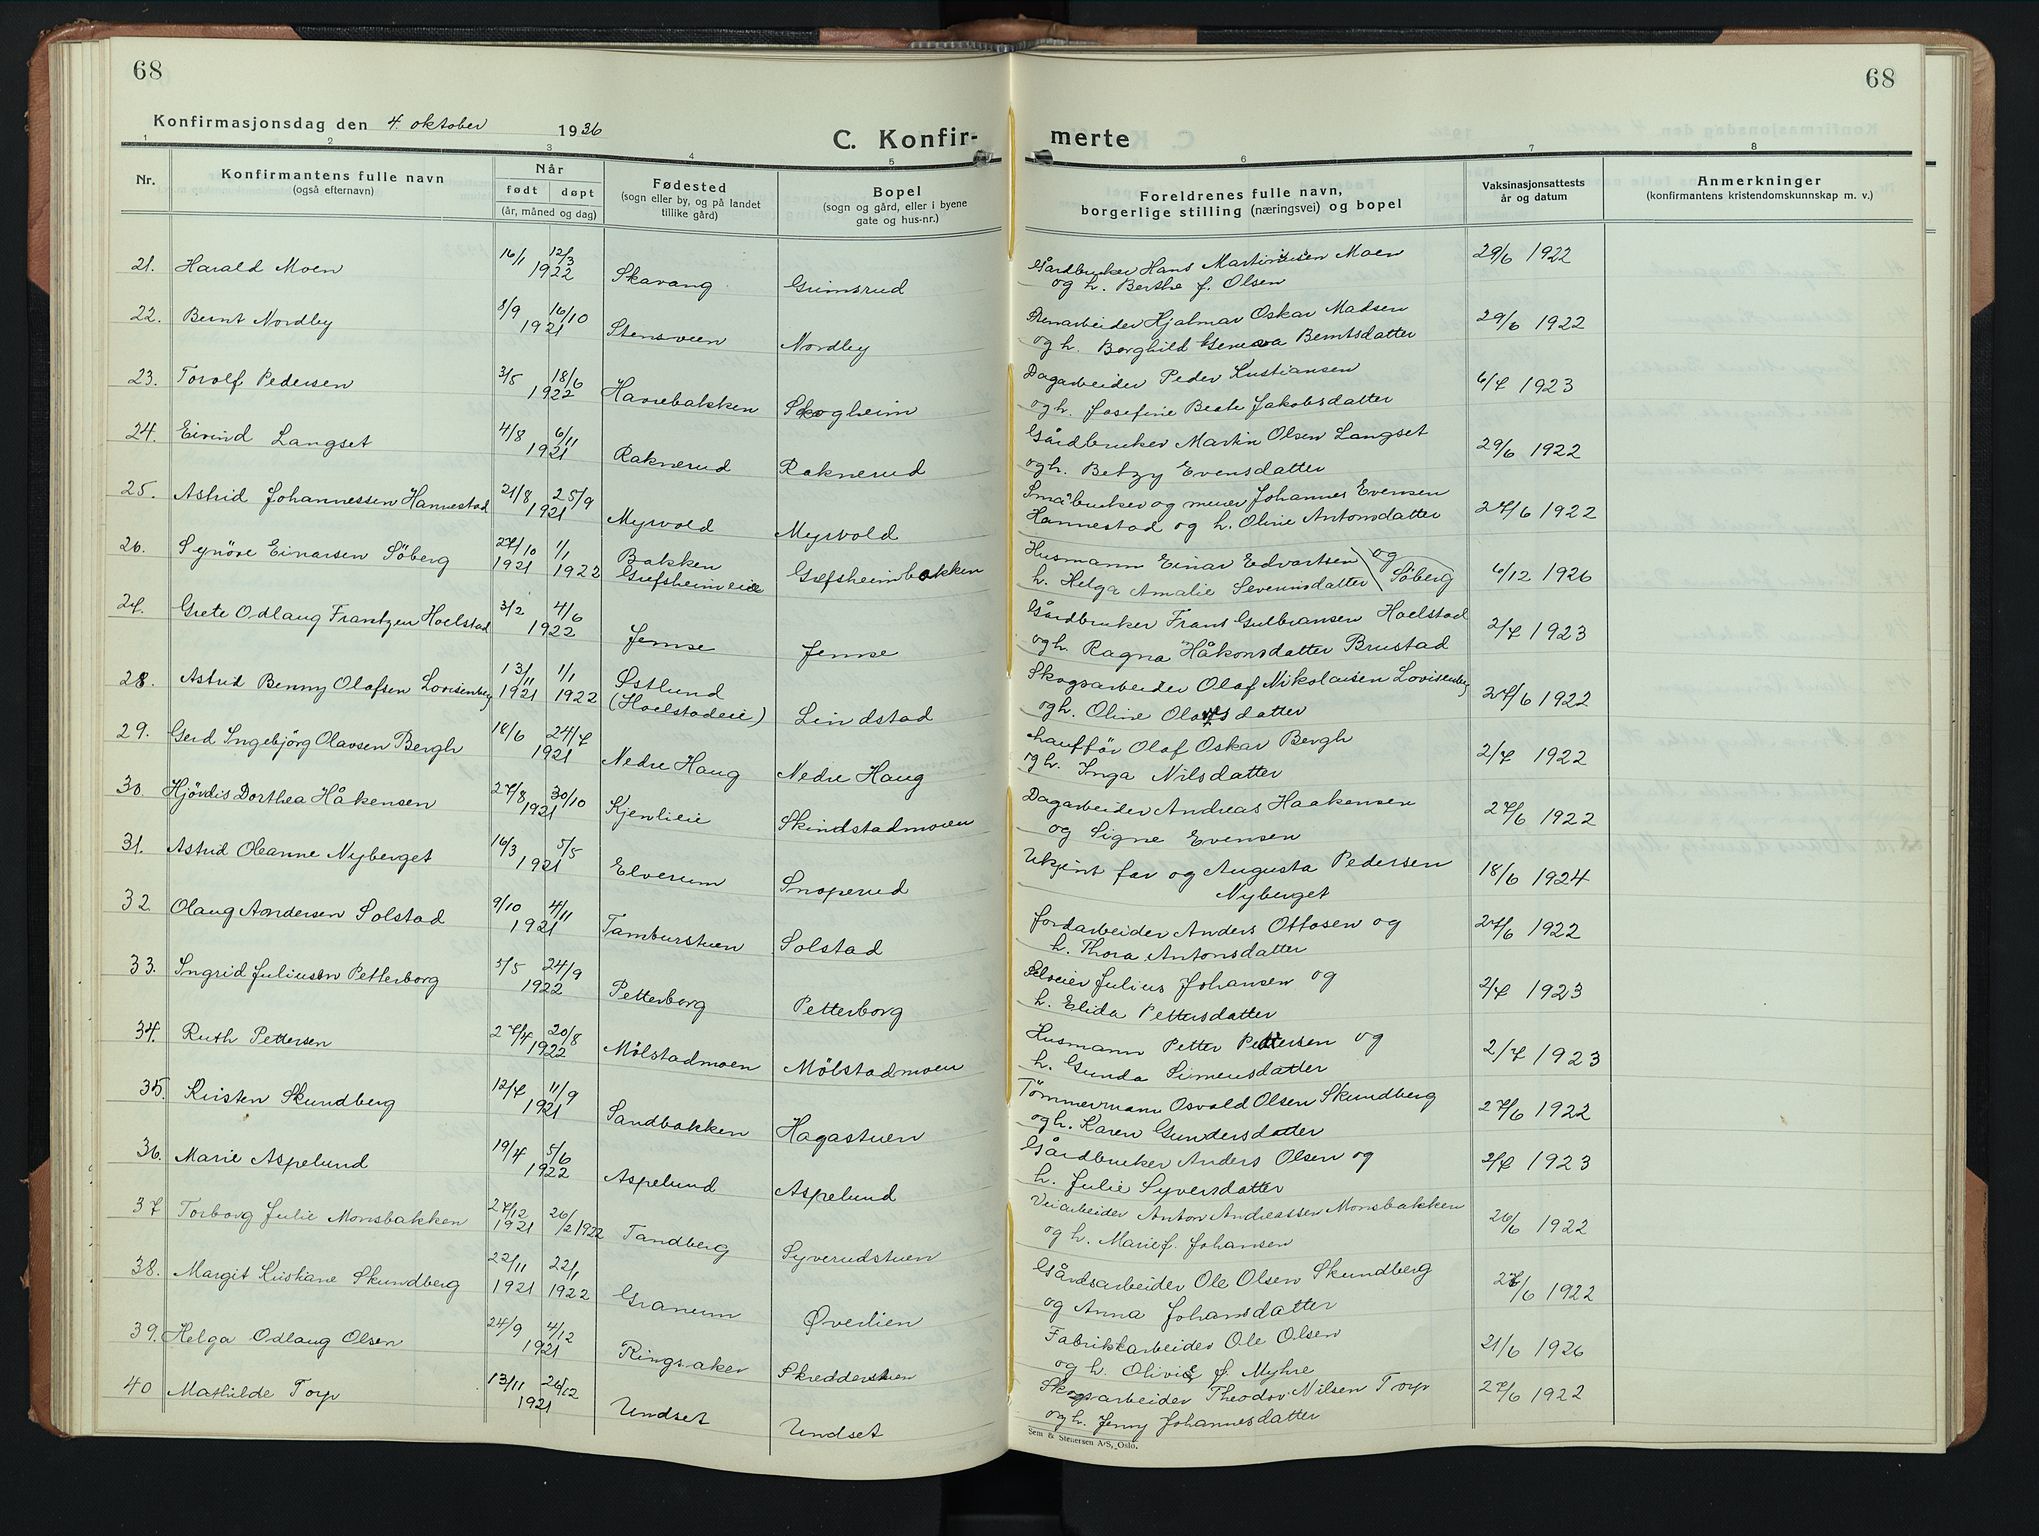 68
68
Konfirmasjonsdag den 4. oktober 1936
C. Konfir-
merte
1 2 3 4 5 6 7 8
Nr.
Konfirmantens fulle navn
(også efternavn)
Når
født døpt
(år, måned og dag)
Fødested
(sogn eller by, og på landet
tillike gård)
Bopel
(sogn og gård, eller i byene
gate og hus-nr.)
Foreldrenes fulle navn,
borgerlige stilling (næringsvei) og bopel
Vaksinasjonsattests
år og datum
Anmerkninger
(konfirmantens kristendomskunnskap m. v.)
21. Harald Moen 16/1 12/3 1922 Skavang Grimsrud
Gårdbruker Hans Martinisen Moen 29/6 1922
og h. Berthe f. Olsen
22. Bernt Nordby 8/9 16/10 1921 Stensveen Nordby
Stenarbeider Hjalmar Oskar Madsen 29/6 1922
og h. Borghild Geneva Berntsdatter
23. Torolf Pedersen 3/5 18/6 1922 Havrebakken Skogheim
Dagarbeider Peder Kristiansen 6/7 1923
og h. Josefine Beate Jakobsdatter
24. Eivind Langset 4/8 6/11 1921 Raknerud Raknerud
Gårdbruker Martin Olsen Langset 29/6 1922
og h. Betzy Evensdatter
25. Astrid Johannessen Hannestad 21/8 25/9 1921 Myrvold Myrvold
Småbruker og murer Johannes Evensen
Hannestad og h. Oline Antonsdatter 27/6 1922
26. Synöve Einarsen Söberg 27/10 1921 1/1 1922 Bakken Grefsheimeie Grefsheimbakken
Husmann Einar Edvartsen og
h. Helga Amalie Severinsdatter Söberg 6/12 1926
27. Grete Odlaug Frantzen Hoelstad 3/2 4/6 1922 Jemse Jemse
Gårdbruker Frans Gulbransen Hoelstad 2/7 1923
og h. Ragna Håkonsdatter Brustad
28. Astrid Benny Olafsen Lovisenberg 13/11 1921 1/1 1922 Østlund (Hoelstadeie) Lindstad
Skogsarbeider Olaf Nikolaisen Lovisenberg 27/6 1922
og h. Oline Olavsdatter
29. Gerd Ingebjörg Olavsen Bergh 18/6 24/7 1921 Nedre Haug Nedre Haug
chauffør Olaf Oskar Bergh 2/7 1922
og h. Inga Nilsdatter
30 Hjördis Dorthea Håkensen 27/8 30/10 1921 Kjenlieie Skindstadmoen
Dagarbeider Andreas Haakensen 27/6 1922
og Signe Evensen
31. Astrid Oleanne Nyberget 16/3 5/5 1921 Elverum Snoperud
Ukjent far og Augusta Pedersen 18/6 1924
Nyberget
32. Olaug Andersen Solstad 9/10 4/11 1921 Tamburstuen Solstad
Jordarbeider Anders Ottosen og 27/6 1922
h. Thora Antonsdatter
33. Ingrid Juliussen Petterborg 5/5 24/9 1922 Petterborg Petterborg
Selveier Julius Johansen og 2/7 1923
h. Elida Pettersdatter
34. Ruth Pettersen 27/4 20/8 1922 Mölstadmoen Mölstadmoen
Husmann Petter Pettersen og 2/7 1923
h. Gunda Simensdatter
35. Kristen Skundberg 12/7 11/9 1921 Sandbakken Hagastuen
Tömmermann Osvald Olsen Skundberg 27/6 1922
og h. Karen Gundersdatter
36. Marie Aspelund 19/4 5/6 1922 Aspelund Aspelund
Gårdbruker Anders Olsen og 2/7 1923
h. Julie Syversdatter
37 Torborg Julie Monsbakken 27/12 1921 26/2 1922 Tandberg Syverudstuen
Veiarbeider Anton Andreassen Monsbakken 26/6 1922
og h. Marie f. Johansen
38. Margit Kristiane Skundberg 22/11 1921 22/1 1922 Granum Øverlien
Gårdsarbeider Ole Olsen Skundberg 27/6 1922
og Anna Johansdatter
39. Helga Odlaug Olsen 24/9 4/12 1921 Ringsaker Skredderstuen
Fabrikkarbeider Ole Olsen 21/6 1926
og h. Olivie f. Myhre
40 Mathilde Torp 13/11 26/12 1921 Undset Undset
Skogsarbeider Theodor Nilsen Torp 27/6 1922
og h. Jenny Johannesdatter
Sem & Stenersen A/S, Oslo.